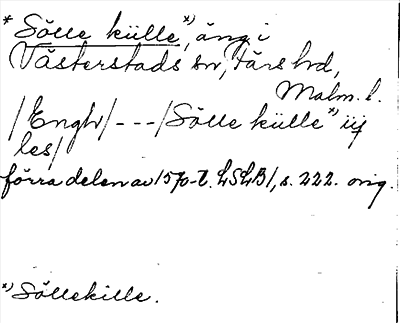 * Sölle külle *), äng i
Västerstads sn, Färs hd,
Malm. l.
/Engh/---/Sölle külle *) iij
les/
förra delen av 1570-t. LSLB1, s. 222. orig.
*) Söllekille.